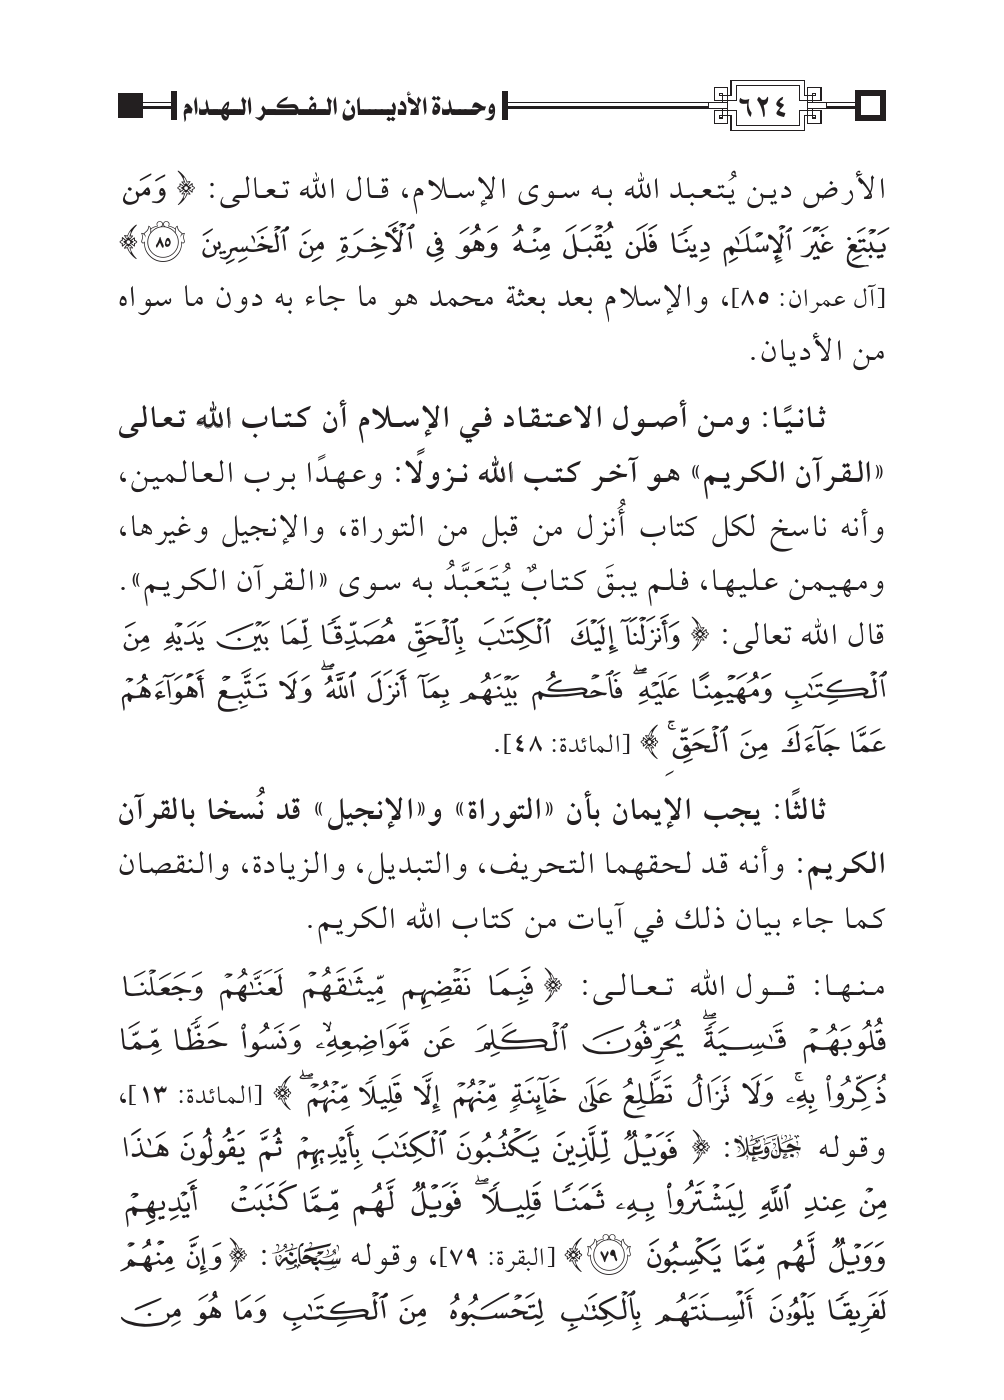 ٦٢٤ وحـدة الأديـــان الـفـكـر الـهـدام
الأرض ديـن يُتعبـد الله بـه سـوى الإسـلام، قـال الله تعـالى: ﴿ وَمَن
يَبْتَغِ غَيْرَ ٱلْإِسْلَٰمِ دِينًا فَلَن يُقْبَلَ مِنْهُ وَهُوَ فِى ٱلْآخِرَةِ مِنَ ٱلْخَٰسِرِينَ ٨٥ ﴾
[آل عمران: ٨٥]، والإسلام بعد بعثة محمد هو ما جاء به دون ما سواه
من الأديان.
ثـانيًـا: ومـن أصـول الاعتقـاد فـي الإسـلام أن كتـاب الله تعـالى
«القـرآن الكريم» هـو آخـر كتـب الله نـزولًا: وعهـدًا بـرب العـالمين،
وأنه ناسخ لكل كتاب أُنزل من قبل من التوراة، والإنجيل وغيرها،
ومهيمن عليها، فلـم يبقَ كتـابٌ يُتَعَبَّدُ بـه سـوى «القـرآن الكريم».
قال الله تعالى: ﴿ وَأَنزَلْنَآ إِلَيْكَ ٱلْكِتَٰبَ بِٱلْحَقِّ مُصَدِّقًا لِّمَا بَيْنَ يَدَيْهِ مِنَ
ٱلْكِتَٰبِ وَمُهَيْمِنًا عَلَيْهِ ۖ فَٱحْكُم بَيْنَهُم بِمَآ أَنزَلَ ٱللَّهُ ۖ وَلَا تَتَّبِعْ أَهْوَآءَهُمْ
عَمَّا جَآءَكَ مِنَ ٱلْحَقِّ ۚ ﴾ [المائدة: ٤٨].
ثالثًا: يجب الإيمان بأن «التوراة» و«الإنجيل» قد نُسخا بالقرآن
الكريم: وأنه قد لحقهما التحريف، والتبديل، والزيادة، والنقصان
كما جاء بيان ذلك في آيات من كتاب الله الكريم.
منهـا: قـول الله تعـالى: ﴿ فَبِمَا نَقْضِهِم مِّيثَٰقَهُمْ لَعَنَّٰهُمْ وَجَعَلْنَا
قُلُوبَهُمْ قَٰسِيَةً ۖ يُحَرِّفُونَ ٱلْكَلِمَ عَن مَّوَاضِعِهِۦ ۙ وَنَسُوا۟ حَظًّا مِّمَّا
ذُكِّرُوا۟ بِهِۦ ۚ وَلَا تَزَالُ تَطَّلِعُ عَلَىٰ خَآئِنَةٍ مِّنْهُمْ إِلَّا قَلِيلًا مِّنْهُمْ ۖ ﴾ [المائدة: ١٣]،
وقوله جَلَّ وَعَلَا: ﴿ فَوَيْلٌ لِّلَّذِينَ يَكْتُبُونَ ٱلْكِتَٰبَ بِأَيْدِيهِمْ ثُمَّ يَقُولُونَ هَٰذَا
مِنْ عِندِ ٱللَّهِ لِيَشْتَرُوا۟ بِهِۦ ثَمَنًا قَلِيلًا ۖ فَوَيْلٌ لَّهُم مِّمَّا كَتَبَتْ أَيْدِيهِمْ
وَوَيْلٌ لَّهُم مِّمَّا يَكْسِبُونَ ٧٩ ﴾ [البقرة: ٧٩]، وقوله سُبْحَانَهُ: ﴿ وَإِنَّ مِنْهُمْ
لَفَرِيقًا يَلْوُۥنَ أَلْسِنَتَهُم بِٱلْكِتَٰبِ لِتَحْسَبُوهُ مِنَ ٱلْكِتَٰبِ وَمَا هُوَ مِنَ